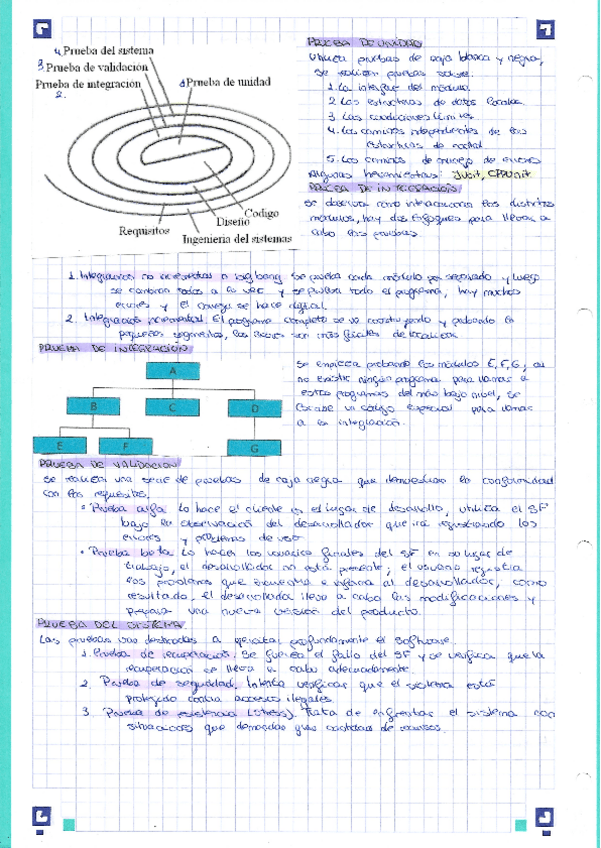 4 Prueba del sistema
3 Prueba de validación
Prueba de integración
2.
1 Prueba de unidad
Codigo
Diseño
Requisitos
Ingenieria del sistemas
PRUEBA DE UNIDAD
Utiliza pruebas de caja blanca y negra,
se realizan pruebas sobre:
1. La interfaz del módulo
2. Las estructuras de datos locales
3. Las condiciones límites
4. Los caminos independientes de las
estructuras de control
5. Los caminos de manejo de errores
Algunas herramientas: Junit, CPPUnit
PRUEBA DE INTEGRACIÓN
Se observa como interaccionan los distintos
módulos, hay dos enfoques para llevar a
cabo las pruebas
1. Integración no incremental o big bang. Se prueba cada módulo por separado y luego
se combinan todos a la vez y se prueba todo el programa, hay muchos
errores y el se hace
2. Integración incremental. El programa completo se va construyendo y probando en
pequeños segmentos, los errores son más fáciles de localizar.
PRUEBA DE INTEGRACIÓN
A
B
C
D
E
F
G
Se empieza probando los módulos E, F, G, al
no existir ningún programa para llamar a
estos programas del más bajo nivel, se
escribe un código especial para llamar
a la integración.
PRUEBA DE VALIDACIÓN
Se realiza una serie de pruebas de caja negra que demuestran la conformidad
con los requisitos.
• Prueba alfa. Lo hace el cliente en el lugar de desarrollo, utiliza el SF
bajo la observación del desarrollador que irá registrando los
errores y problemas de uso
• Prueba beta. Lo hacen los usuarios finales del SF en su lugar de
trabajo, el desarrollador no está presente; el usuario registra
los problemas que encuentra e informa al desarrollador, como
resultado, el desarrollador lleva a cabo las modificaciones y
prepara una nueva versión del producto.
PRUEBA DEL SISTEMA
Las pruebas van destinadas a ejercitar profundamente el software.
1. Prueba de recuperación. Se fuerza el fallo del SF y se verifica que la
recuperación se lleva a cabo adecuadamente.
2. Prueba de seguridad. Intenta verificar que el sistema está
protegido contra accesos ilegales.
3. Prueba de resistencia (stress). Trata de enfrentar el sistema con
situaciones que demandan gran cantidad de recursos.